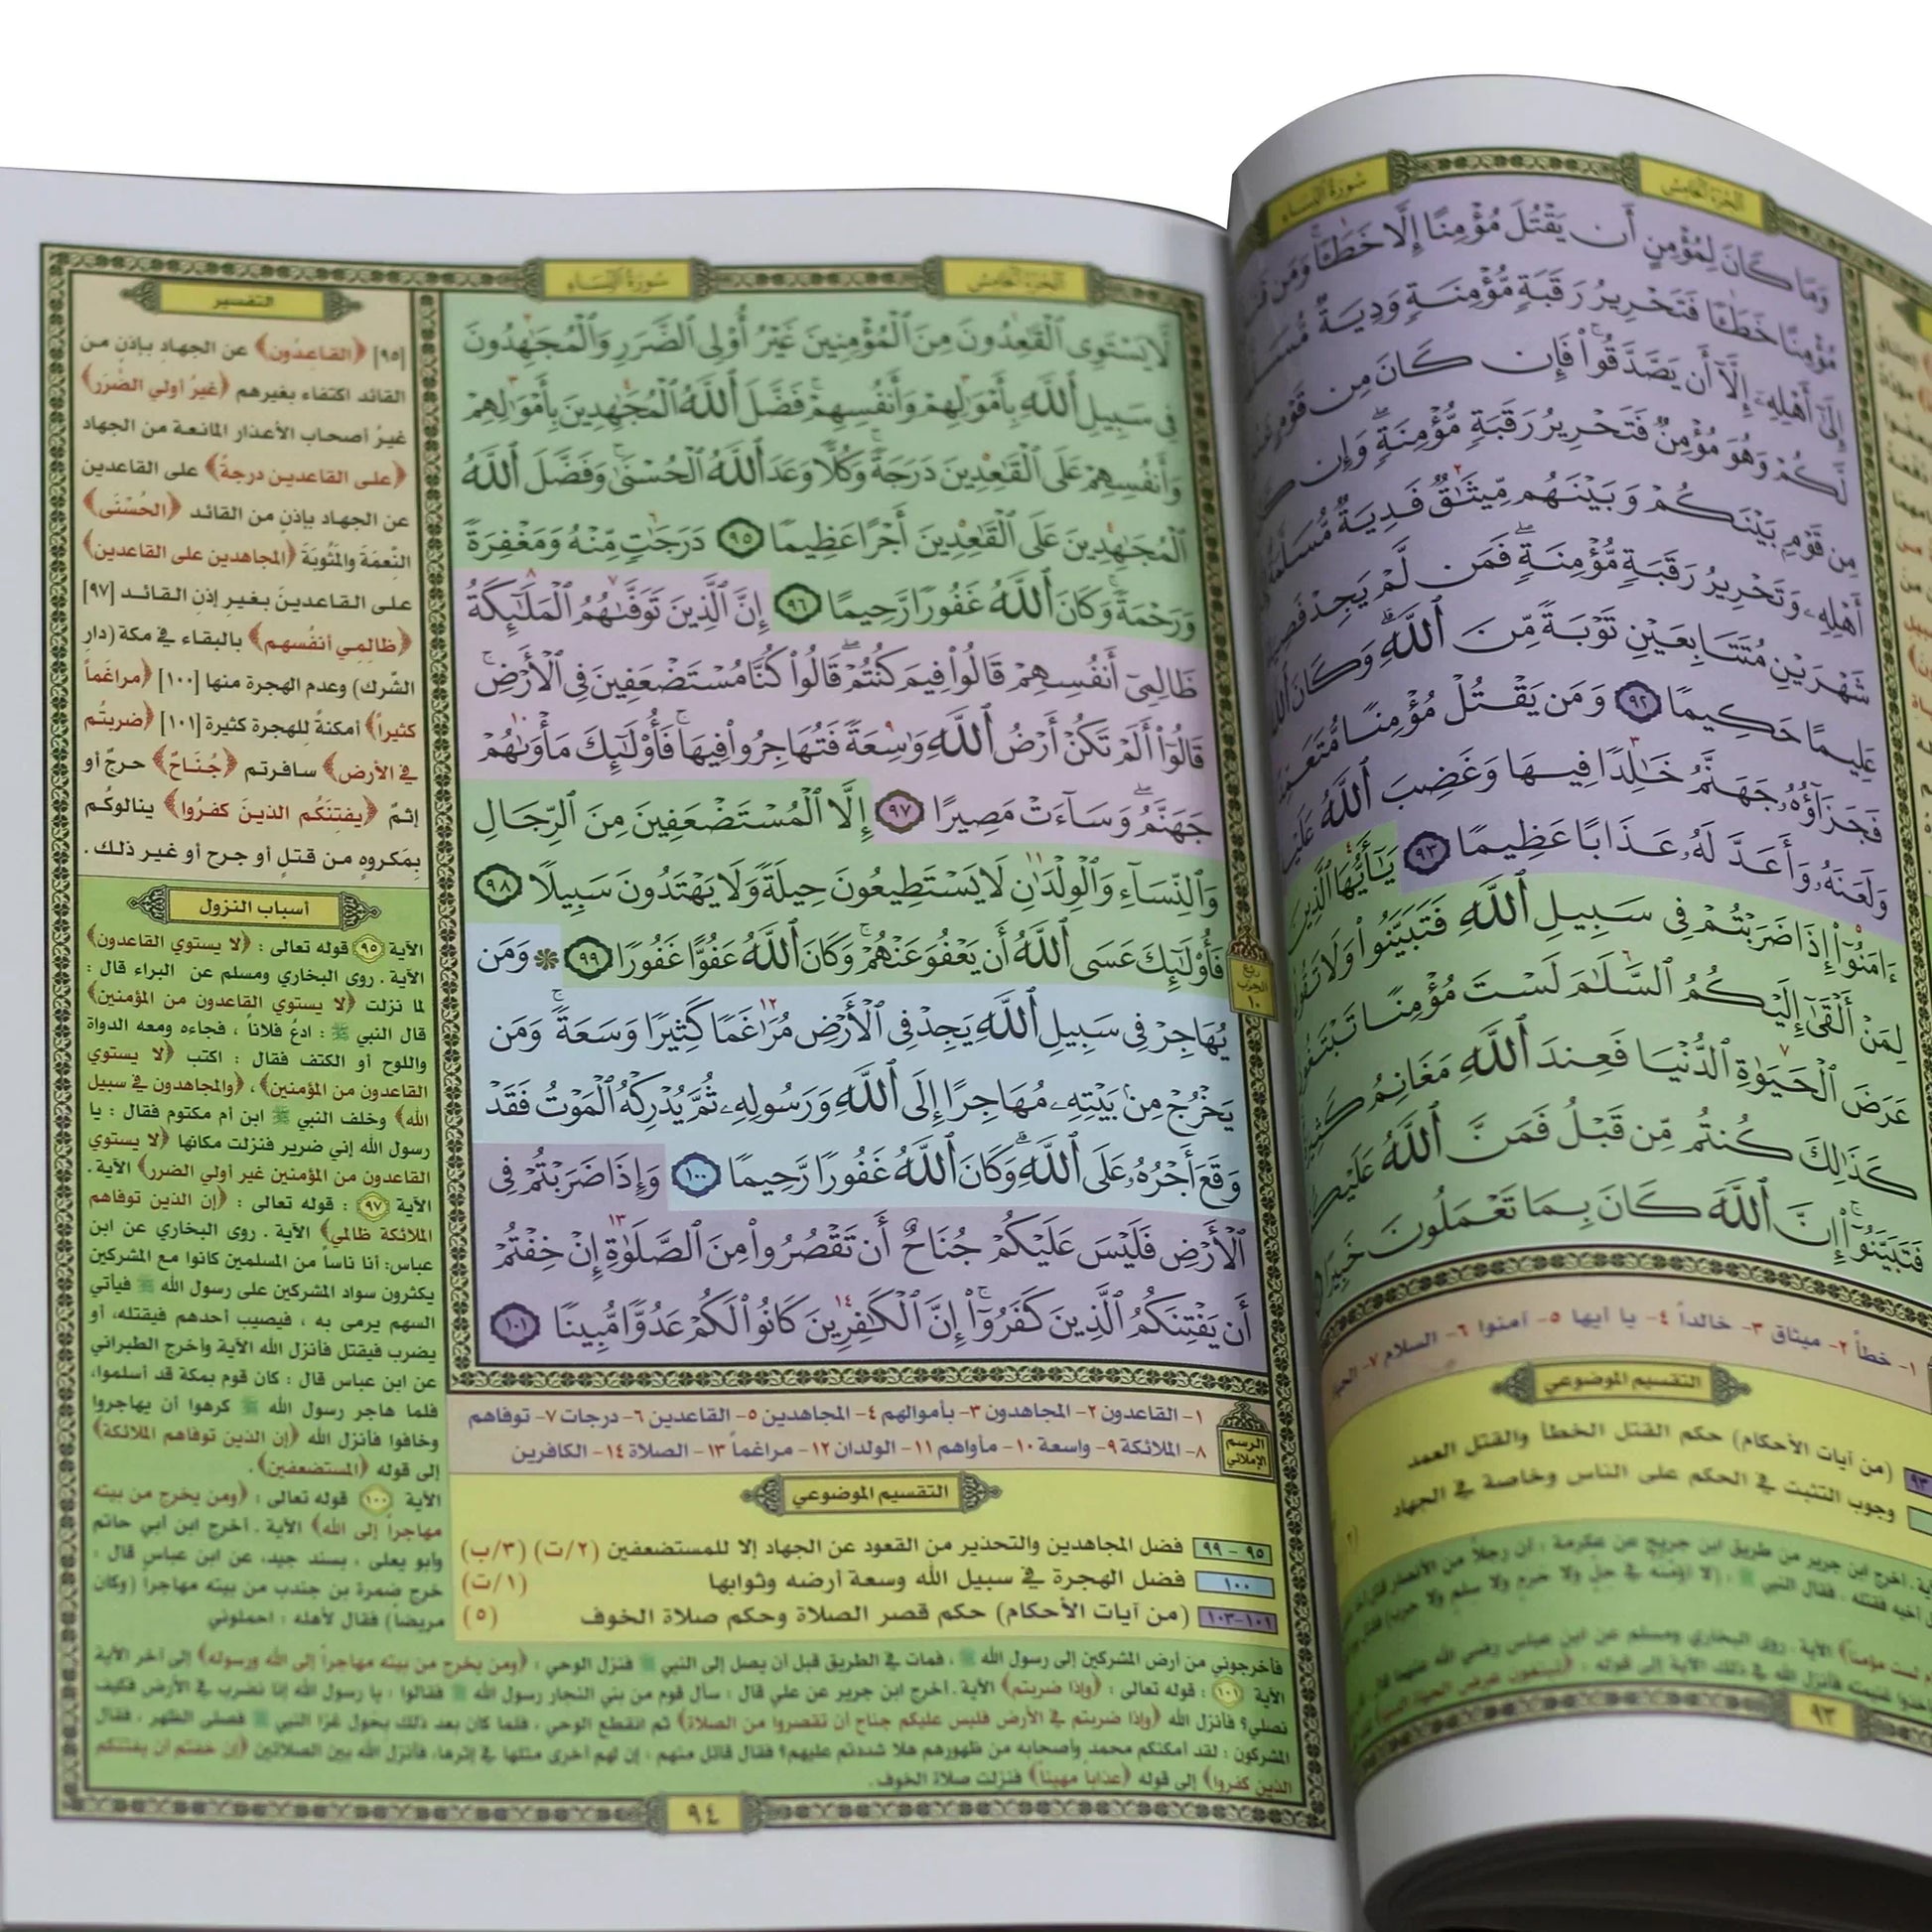 سُورَةُ النِّسَاءِ
الجُزْءُ الخَامِسُ
وَمَا كَانَ لِمُؤْمِنٍ أَن يَقْتُلَ مُؤْمِنًا إِلَّا خَطَـًٔا وَمَن
مُؤْمِنًا خَطَـًٔا فَتَحْرِيرُ رَقَبَةٍ مُّؤْمِنَةٍ وَدِيَةٌ
إِلَىٰٓ أَهْلِهِۦٓ إِلَّآ أَن يَصَّدَّقُوا۟ فَإِن كَانَ مِن قَوْمٍ
لَّكُمْ وَهُوَ مُؤْمِنٌ فَتَحْرِيرُ رَقَبَةٍ مُّؤْمِنَةٍ وَإِن
مِن قَوْمٍۭ بَيْنَكُمْ وَبَيْنَهُم مِّيثَـٰقٌ فَدِيَةٌ
أَهْلِهِۦ وَتَحْرِيرُ رَقَبَةٍ مُّؤْمِنَةٍ فَمَن لَّمْ يَجِدْ
شَهْرَيْنِ مُتَتَابِعَيْنِ تَوْبَةً مِّنَ ٱللَّهِ وَكَانَ
عَلِيمًا حَكِيمًا ٩٢ وَمَن يَقْتُلْ مُؤْمِنًا
فَجَزَآؤُهُۥ جَهَنَّمُ خَـٰلِدًا فِيهَا وَغَضِبَ ٱللَّهُ
وَلَعَنَهُۥ وَأَعَدَّ لَهُۥ عَذَابًا عَظِيمًا ٩٣ يَـٰٓأَيُّهَا ٱلَّذِينَ
ءَامَنُوٓا۟ إِذَا ضَرَبْتُمْ فِى سَبِيلِ ٱللَّهِ فَتَبَيَّنُوا۟ وَلَا
لِمَنْ أَلْقَىٰٓ إِلَيْكُمُ ٱلسَّلَـٰمَ لَسْتَ مُؤْمِنًا
عَرَضَ ٱلْحَيَوٰةِ ٱلدُّنْيَا فَعِندَ ٱللَّهِ مَغَانِمُ
كَذَٰلِكَ كُنتُم مِّن قَبْلُ فَمَنَّ ٱللَّهُ
فَتَبَيَّنُوٓا۟ إِنَّ ٱللَّهَ كَانَ بِمَا تَعْمَلُونَ
١- خطأً ٢- ميثاق ٣- خالداً ٤- يا أيها ٥- آمنوا ٦- السلام ٧-
التقسيم الموضوعي
٩٣ (من آيات الأحكام) حكم القتل الخطأ والقتل العمد
وجوب التثبت في الحكم على الناس وخاصة في الجهاد
٩٣
سُورَةُ النِّسَاءِ
الجُزْءُ الخَامِسُ
لَّا يَسْتَوِى ٱلْقَـٰعِدُونَ مِنَ ٱلْمُؤْمِنِينَ غَيْرُ أُو۟لِى ٱلضَّرَرِ وَٱلْمُجَـٰهِدُونَ
فِى سَبِيلِ ٱللَّهِ بِأَمْوَٰلِهِمْ وَأَنفُسِهِمْ فَضَّلَ ٱللَّهُ ٱلْمُجَـٰهِدِينَ بِأَمْوَٰلِهِمْ
وَأَنفُسِهِمْ عَلَى ٱلْقَـٰعِدِينَ دَرَجَةً وَكُلًّا وَعَدَ ٱللَّهُ ٱلْحُسْنَىٰ وَفَضَّلَ ٱللَّهُ
ٱلْمُجَـٰهِدِينَ عَلَى ٱلْقَـٰعِدِينَ أَجْرًا عَظِيمًا ٩٥ دَرَجَـٰتٍ مِّنْهُ وَمَغْفِرَةً
وَرَحْمَةً وَكَانَ ٱللَّهُ غَفُورًا رَّحِيمًا ٩٦ إِنَّ ٱلَّذِينَ تَوَفَّىٰهُمُ ٱلْمَلَـٰٓئِكَةُ
ظَالِمِىٓ أَنفُسِهِمْ قَالُوا۟ فِيمَ كُنتُمْ قَالُوا۟ كُنَّا مُسْتَضْعَفِينَ فِى ٱلْأَرْضِ
قَالُوٓا۟ أَلَمْ تَكُنْ أَرْضُ ٱللَّهِ وَٰسِعَةً فَتُهَاجِرُوا۟ فِيهَا فَأُو۟لَـٰٓئِكَ مَأْوَىٰهُمْ
جَهَنَّمُ وَسَآءَتْ مَصِيرًا ٩٧ إِلَّا ٱلْمُسْتَضْعَفِينَ مِنَ ٱلرِّجَالِ
وَٱلنِّسَآءِ وَٱلْوِلْدَٰنِ لَا يَسْتَطِيعُونَ حِيلَةً وَلَا يَهْتَدُونَ سَبِيلًا ٩٨
فَأُو۟لَـٰٓئِكَ عَسَى ٱللَّهُ أَن يَعْفُوَ عَنْهُمْ وَكَانَ ٱللَّهُ عَفُوًّا غَفُورًا ٩٩ ۞ وَمَن
يُهَاجِرْ فِى سَبِيلِ ٱللَّهِ يَجِدْ فِى ٱلْأَرْضِ مُرَٰغَمًا كَثِيرًا وَسَعَةً وَمَن
يَخْرُجْ مِنۢ بَيْتِهِۦ مُهَاجِرًا إِلَى ٱللَّهِ وَرَسُولِهِۦ ثُمَّ يُدْرِكْهُ ٱلْمَوْتُ فَقَدْ
وَقَعَ أَجْرُهُۥ عَلَى ٱللَّهِ وَكَانَ ٱللَّهُ غَفُورًا رَّحِيمًا ١٠٠ وَإِذَا ضَرَبْتُمْ فِى
ٱلْأَرْضِ فَلَيْسَ عَلَيْكُمْ جُنَاحٌ أَن تَقْصُرُوا۟ مِنَ ٱلصَّلَوٰةِ إِنْ خِفْتُمْ
أَن يَفْتِنَكُمُ ٱلَّذِينَ كَفَرُوٓا۟ إِنَّ ٱلْكَـٰفِرِينَ كَانُوا۟ لَكُمْ عَدُوًّا مُّبِينًا ١٠١
ربع
الحزب
١٠
الرسم
الإملائي
١- القاعدون ٢- المجاهدون ٣- بأموالهم ٤- المجاهدين ٥- القاعدين ٦- درجات ٧- توفاهم
٨- الملائكة ٩- واسعة ١٠- مأواهم ١١- الولدان ١٢- مراغماً ١٣- الصلاة ١٤- الكافرين
التقسيم الموضوعي
٩٥ - ٩٩ فضل المجاهدين والتحذير من القعود عن الجهاد إلا للمستضعفين (٢/ت) (٣/ب)
١٠٠ فضل الهجرة في سبيل الله وسعة أرضه وثوابها (١/ت)
١٠١-١٠٣ (من آيات الأحكام) حكم قصر الصلاة وحكم صلاة الخوف (٥)
التفسير
[٩٥] ﴿القاعدُون﴾ عن الجهادِ بإذنٍ من
القائد اكتفاء بغيرهم ﴿غيرُ أولي الضَّرَر﴾
غيرُ أصحاب الأعذار المانعة من الجهاد
﴿على القاعدين درجةً﴾ على القاعدين
عن الجهاد بإذنٍ من القائد ﴿الحُسْنَى﴾
النِّعمَة والمَثُوبَة ﴿المجاهدين على القاعدين﴾
على القاعدينَ بغيرِ إذنِ القائد [٩٧]
﴿ظالِمِي أنفُسهم﴾ بالبقاء في مكة (دار
الشّرك) وعدم الهجرة منها [١٠٠] ﴿مراغَماً
كثيراً﴾ أمكنةً للهجرة كثيرة [١٠١] ﴿ضربتُم
في الأرض﴾ سافرتم ﴿جُنَاحٌ﴾ حرجٌ أو
إثمٌ ﴿يفتِنَكُم الذينَ كفرُوا﴾ ينالوكُم
بمَكروهٍ من قتلٍ أو جرح أو غير ذلك.
أسباب النزول
الآية ٩٥ قوله تعالى : ﴿لا يستوي القاعدون﴾
الآية . روى البخاري ومسلم عن البراء قال :
لما نزلت ﴿لا يستوي القاعدون من المؤمنين﴾
قال النبي ﷺ : ادعُ فلاناً ، فجاءه ومعه الدواة
واللوح أو الكتف فقال : اكتب ﴿لا يستوي
القاعدون من المؤمنين﴾، ﴿والمجاهدون في سبيل
الله﴾ وخلف النبي ﷺ ابن أم مكتوم فقال : يا
رسول الله إني ضرير فنزلت مكانها ﴿لا يستوي
القاعدون من المؤمنين غير أولي الضرر﴾ الآية.
الآية ٩٧ : قوله تعالى : ﴿إن الذين توفاهم
الملائكة ظالمي﴾ الآية . روى البخاري عن ابن
عباس: أنا ناساً من المسلمين كانوا مع المشركين
يكثرون سواد المشركين على رسول الله ﷺ فيأتي
السهم يرمى به ، فيصيب أحدهم فيقتله، أو
يضرب فيقتل فأنزل الله الآية وأخرج الطبراني
عن ابن عباس قال : كان قوم بمكة قد أسلموا،
فلما هاجر رسول الله ﷺ كرهوا أن يهاجروا
وخافوا فأنزل الله ﴿إن الذين توفاهم الملائكة﴾
إلى قوله ﴿المستضعفين﴾.
الآية ١٠٠ قوله تعالى : ﴿ومن يخرج من بيته
مهاجراً إلى الله﴾ الآية . أخرج ابن أبي حاتم
وأبو يعلى ، بسند جيد، عن ابن عباس قال :
خرج ضمرة بن جندب من بيته مهاجراً (وكان
مريضاً) فقال لأهله : احملوني
فأخرجوني من أرض المشركين إلى رسول الله ﷺ ، فمات في الطريق قبل أن يصل إلى النبي ﷺ فنزل الوحي : ﴿ومن يخرج من بيته مهاجراً إلى الله ورسوله﴾ إلى آخر الآية
الآية ١٠١ : قوله تعالى : ﴿وإذا ضربتم﴾ الآية . أخرج ابن جرير عن علي قال : سأل قوم من بني النجار رسول الله ﷺ فقالوا : يا رسول الله إنا نضرب في الأرض فكيف
نصلي؟ فأنزل الله ﴿وإذا ضربتم في الأرض فليس عليكم جناح أن تقصروا من الصلاة﴾ ثم انقطع الوحي ، فلما كان بعد ذلك بحول غزا النبي ﷺ فصلى الظهر ، فقال
المشركون : لقد أمكنكم محمد وأصحابه من ظهورهم هلا شددتم عليهم؟ فقال قائل منهم : إن لهم أخرى مثلها في إثرها، فأنزل الله بين الصلاتين ﴿إن خفتم أن يفتنكم
الذين كفروا﴾ إلى قوله ﴿عذاباً مهيناً﴾ فنزلت صلاة الخوف.
٩٤